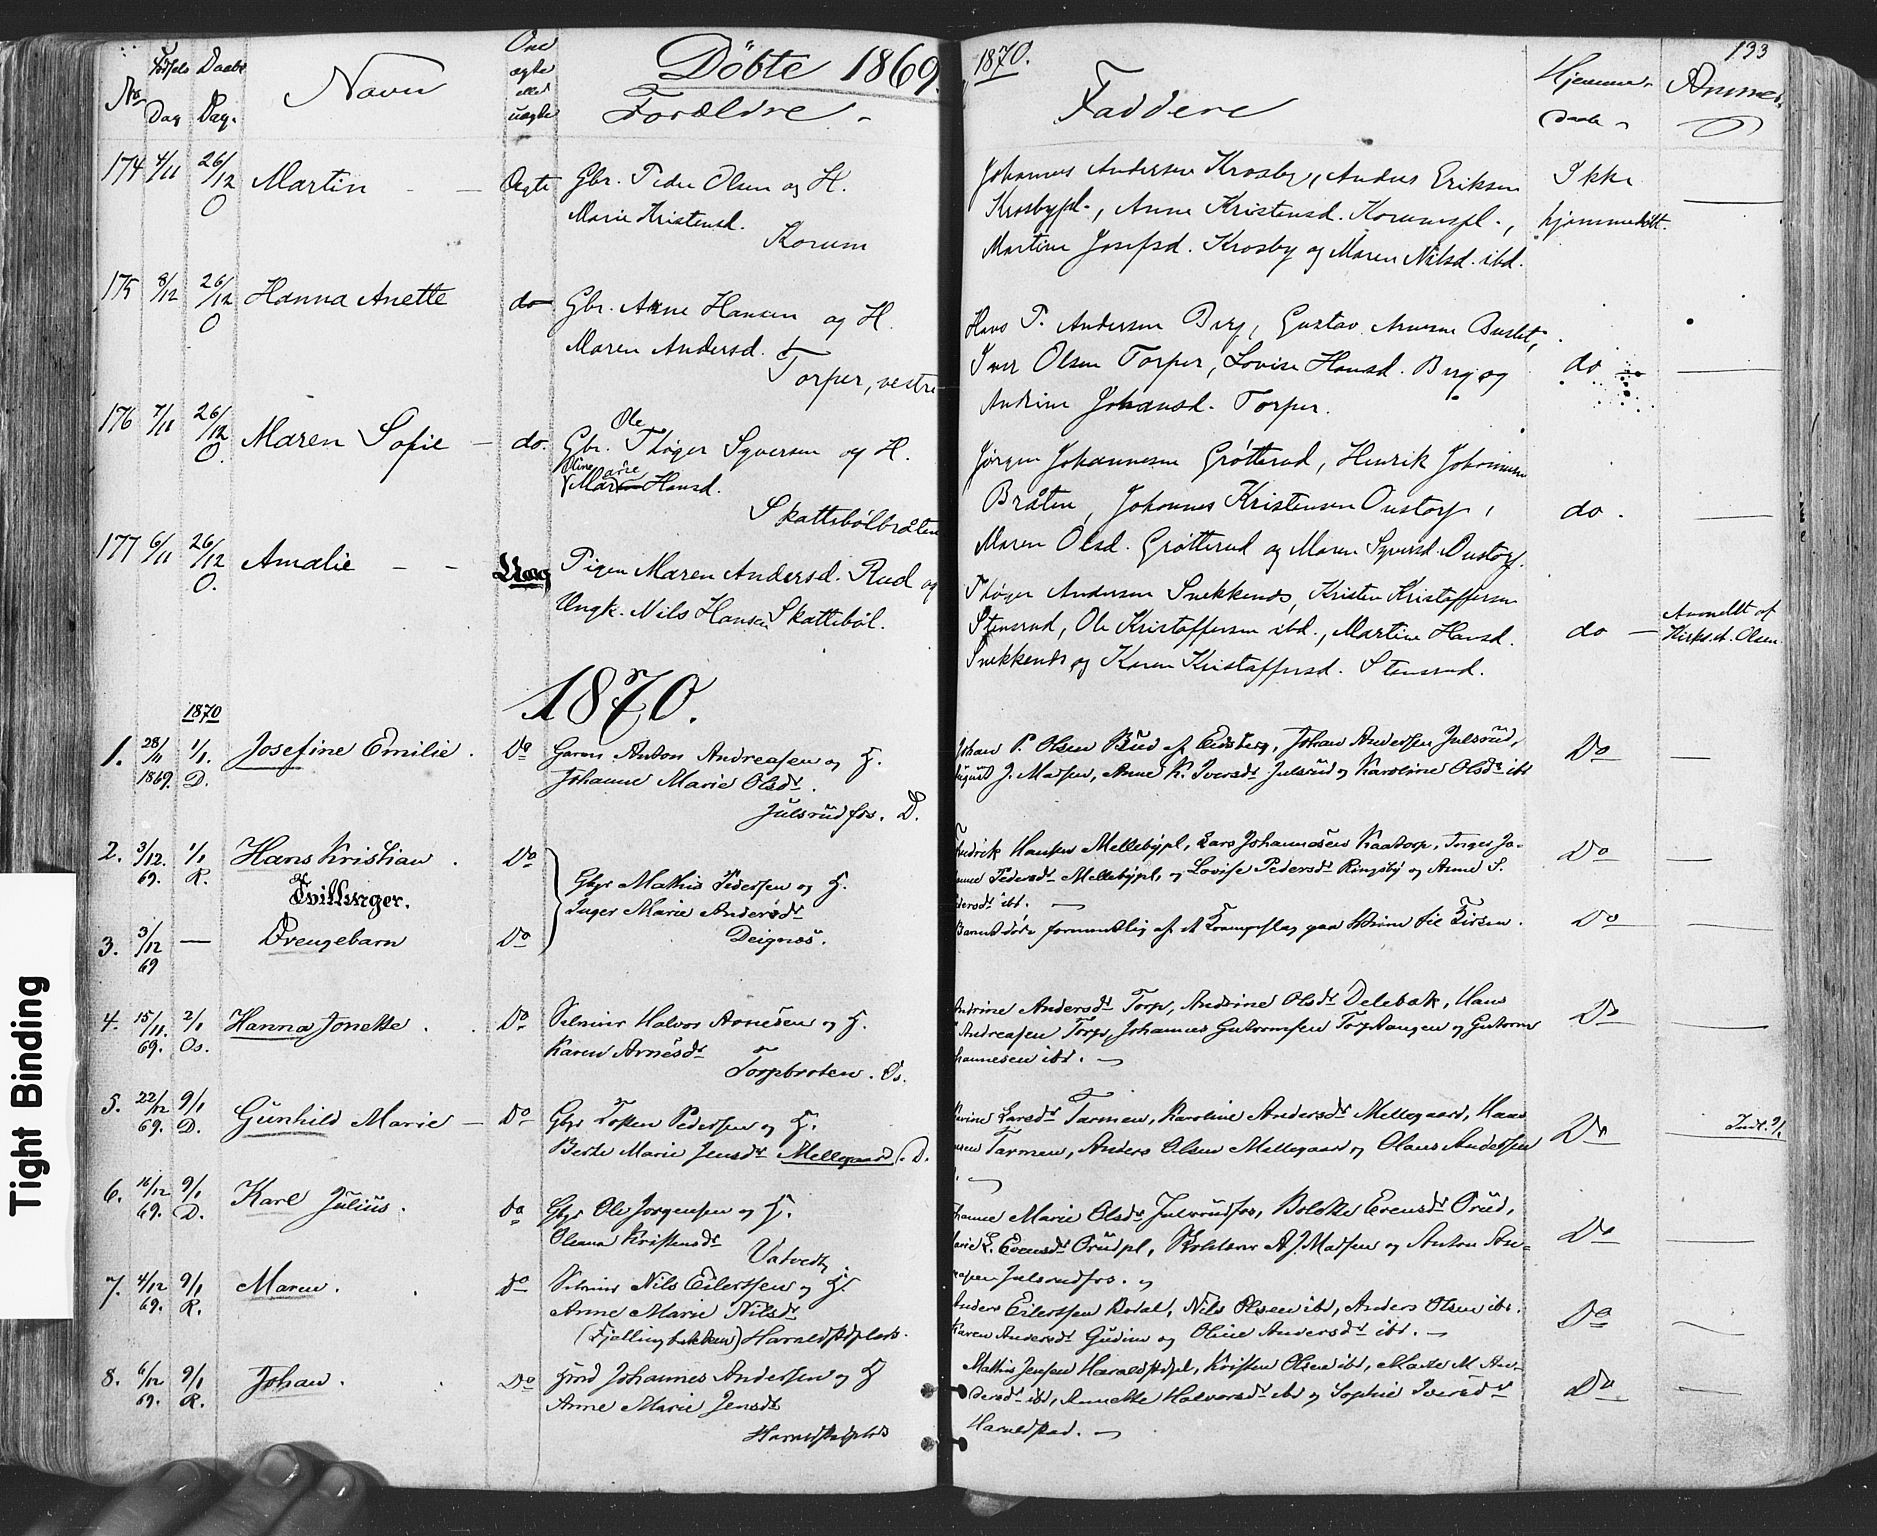 Döbte 1869. 1870. 133
No Fødsels Dag Daabs Dag. Navn Om ægte eller uægte Forældre. Faddere Hjemme- daab Anmæ.
174 4/11 26/12 O Martin - - Ægte Gbr. Peder Olsen og H.
Marie Kristensd.
Korum
Johannes Andersen Krosby, Anders Eriksen
Krosbypl., Anne Kristensd. Korumspl.,
Martine Josefsd. Krosby og Maren Nilsd. ibd.
Ikke
hjemmedøbt.
175 8/12 26/12 O Hanna Anette do Gbr. Arne Hansen og H.
Maren Andersd.
Torper, vestre
Hans P. Andersen Berg, Gustav Arnesen
Iver Olsen Torper, Lovise Hansd. Berg og
Andrine Johansd. Torper.
do
176 7/11 26/12 O. Maren Sofie - do. Gbr. Ole Thøger Syversen og H.
Oline Marie Hansd.
Skattebölbråten
Jørgen Johannesen Grøtterud, Henrik Johannesen
Bråten, Johannes Kristensen Oustorp,
Maren Olsd. Grøtterud og Maren Syversd. Oustorp.
do.
177 6/11 26/12 O. Amalie - - Uæg Pigen Maren Andersd. Rud og
Ungk. Nils Hansen Skatteböl.
Thøger Andersen Snekkenes, Kristen Kristoffersen
Stensrud, Ole Kristoffersen ibd., Martine Hansd.
Snekkenes og Karen Kristoffersd. Stensrud.
do
Anmeldt af
Kirks. A. Olsen
1870.
1870
1. 28/11 1869. 1/1. D. Josefine Emilie. Do Garver Anton Andreasen og H.
Johanne Marie Olsdr.
Julsrudfos. D.
Johan P. Olsen Bud af Eidsberg, Johan Andersen Julsrud,
August J. Madsen, Anne K. Iversdr Julsrud og Karoline Olsdr ibd
Do
2. 3/12. 69. 1/1 R. Hans Kristian. Do
Tvillinger.
Gbr Mathis Pedersen og H.
Inger Marie Andersdr
Deignæs.
Fredrik Hansen Mellebypl, Lars Johannesen Kaatorp, Inger Jo-
Pedersdr Mellebypl, og Lovise Pedersdr Ringsby og Anne S.
Pedersdr ibd.
Do
3. 3/12 69 — Drengebarn Do
Barnet døde formentlig af et Krampeslag paa Veien til Kirken.
Do
4. 15/11. 69. 2/1 Os. Hanna Jonette. Do Selveier Halvor Arnesen og H.
Karen Arnesdr
Torpbroten. Os.
Andrine Andersdr Torp, Andrine Olsdr Delebæk, Hans
Andreasen Torp, Johannes Guttormsen Torptangen og Guttorm
Johannesen ibd.
Do
5. 22/12 69. 9/1 D. Gunhild Marie - Do Gbr Torsten Pedersen og H.
Berte Marie Jensdr Mellegaard. D.
Larsdr Tarmen, Karoline Andersdr Mellegaard, Hans
Tarmen, Anders Olsen Mellegaard og Olaus Andersen
Do
Indt. 9/1
6. 16/12 69. 9/1 D. Karl Julius. do Gbr Ole Jørgensen og H.
Oleana Kristensdr
Vatvedt
Johanne Marie Olsdr Julsrudfos, Bolette Evensdr Orud,
Evensdr Orudpl, A. J. Madsen og Anton And-
reasen Julsrudfos.
Do
7. 4/12 69. 9/1 R. Maren. Do Selveier Nils Eilertsen og H.
Anne Marie Nilsdr
(Fjellingbakken) Haraldstadplads.
Anders Eilertsen Bodal, Nils Olsen ibd, Anders Olsen ibd.
Karen Andersdr Gudim og Oline Andersdr ibd.
Do
8. 6/12 69. 9/1 R. Johan. Do Huusmd Johannes Andersen og H
Anne Marie Jensdr
Haraldstadplads
Mathis Jensen Haraldstadpl, Kristen Olsen ibd, Maren M. An-
dersdr ibd, Annette Halvorsdr ibd og Sophie Iversdr
Haraldstad.
Do
Tight Binding